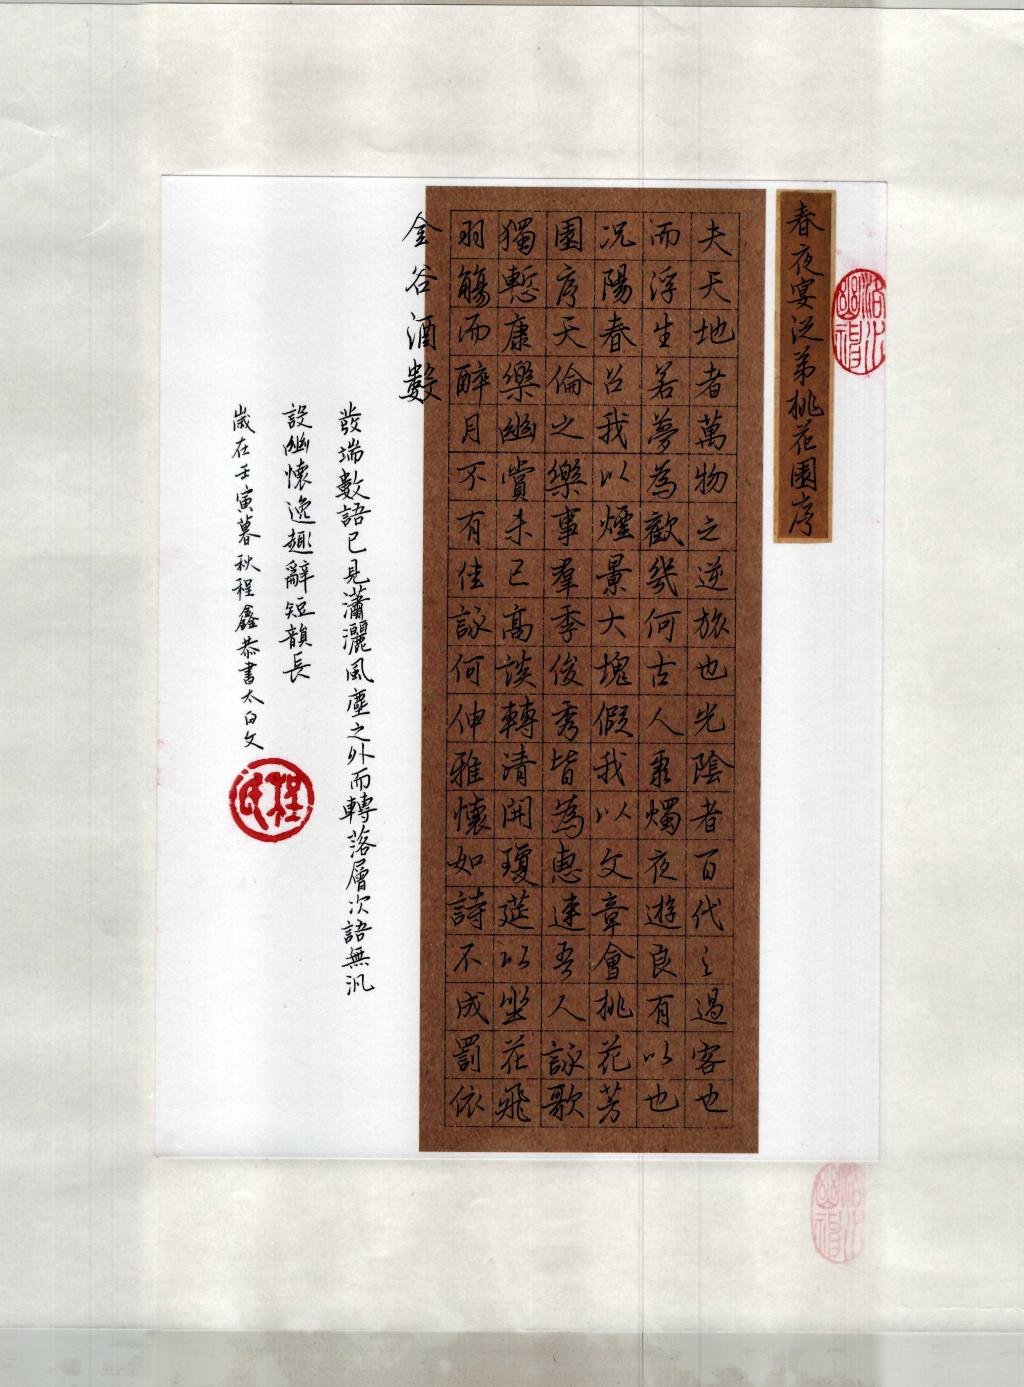 春夜宴從弟桃花園序
夫天地者萬物之逆旅也光陰者百代之過客也
而浮生若夢為歡幾何古人秉燭夜遊良有以也
況陽春召我以煙景大塊假我以文章會桃花芳
園序天倫之樂事羣季俊秀皆為惠連吾人詠歌
獨慙康樂幽賞未已高談轉清開瓊筵以坐花飛
羽觴而醉月不有佳詠何伸雅懷如詩不成罰依
金谷酒數
發端數語已見瀟灑風塵之外而轉落層次語無汎
設幽懷逸趣辭短韻長
歲在壬寅暮秋程鑫恭書太白文
程氏